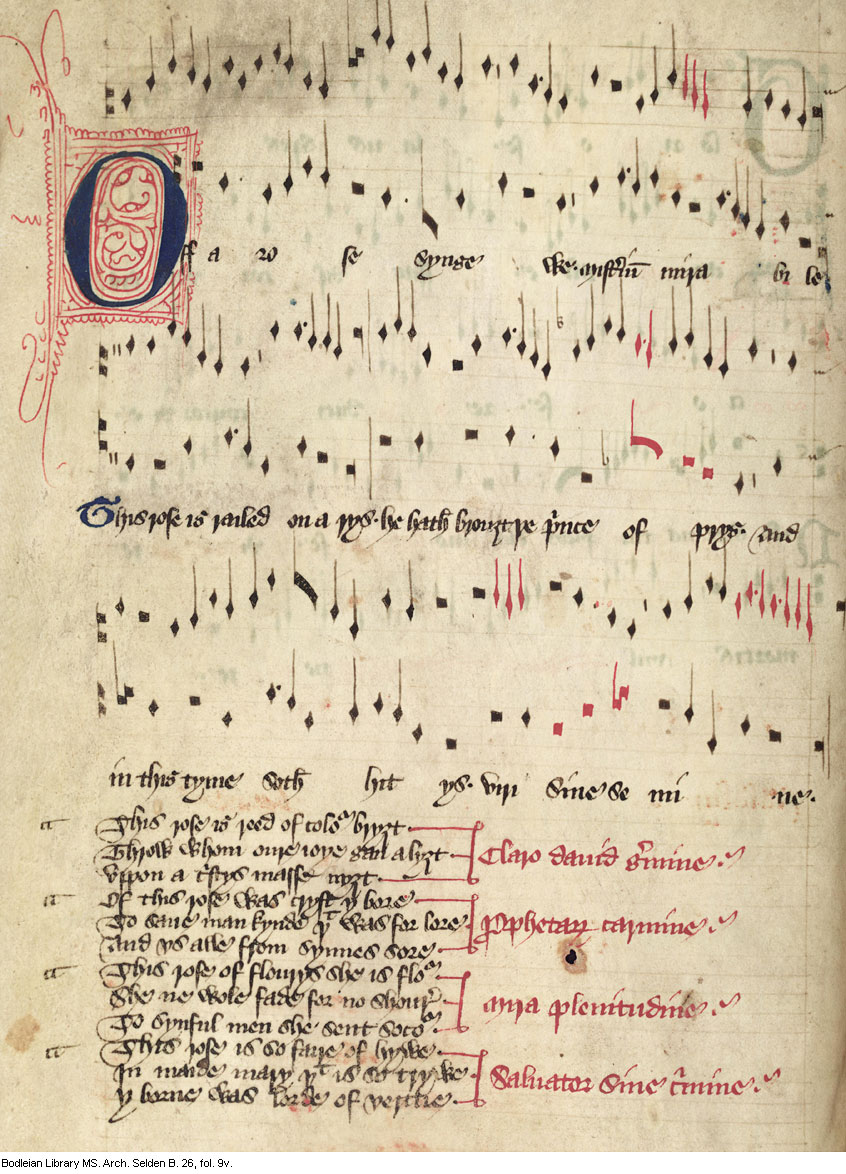 Off a ro se synge we. misteriū mira bi le
This rose is railed on a rys. he hath brouȝt þe prince of prys. and
in this tyme soth hit ys. viri sine se mi ne.
This rose is reed of colour bryȝt
Throw whom oure ioye gan alyȝt
Claro david germine
Vppon a cristysmasse nyȝt
Of this rose was cryst y bore
To saue mankynde þt was for lore
Prophetarum carmine
And vs alle from synnes sore
This rose of flourys she is flour
She ne wole fade for no shour
mira plenitudine
To synful men she sent socour
This rose is so faire of hywe
In maide mary þt is so trywe
Saluator sine crimine
y borne was lorde of vertue
Bodleian Library MS. Arch. Selden B. 26, fol. 9v.